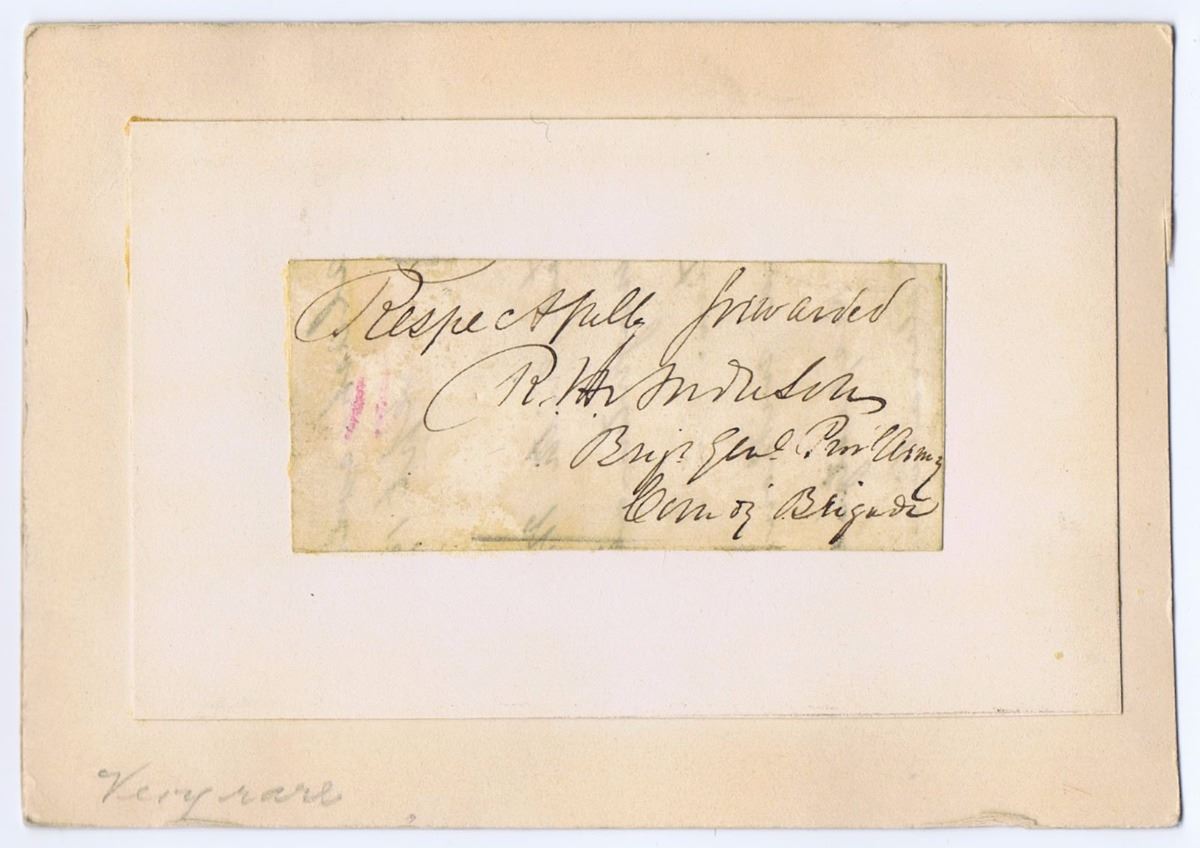 Respectfully forwarded
R. H. Anderson
Brig. Genl. Prov. Army
Comdg Brigade
Very rare